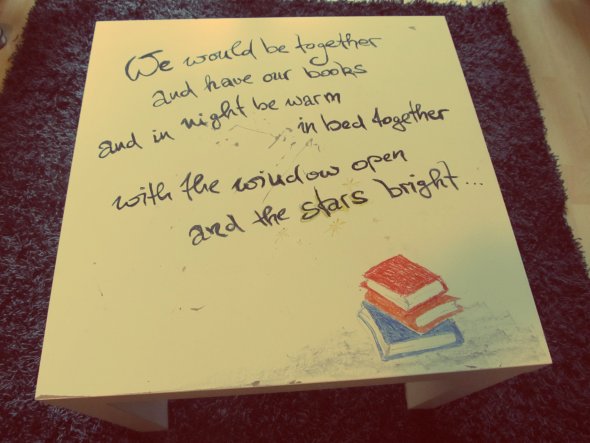 We would be together
and have our books
and in night be warm
in bed together
with the window open
and the stars bright...